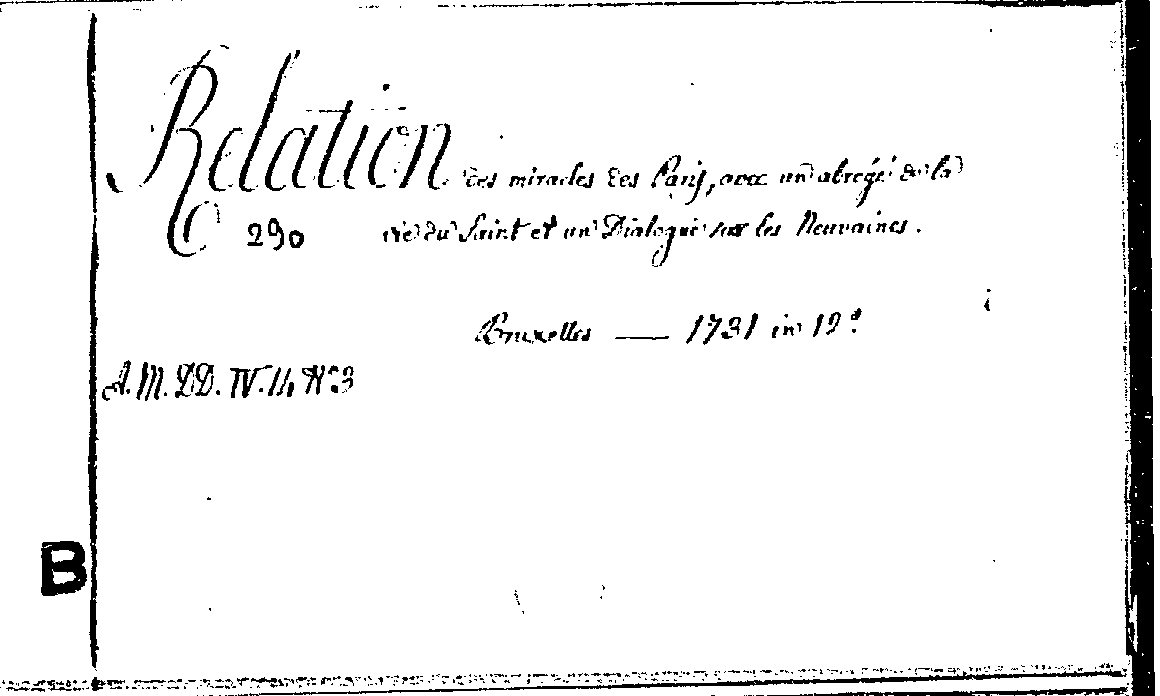 Relation des miracles des Paris, avec un abrégé de la
290 vie du Saint et un Dialogue sur les Neuvaines.
Bruxelles — 1731 in 12º
A. M. DD. IV. 14 Nº 3
B